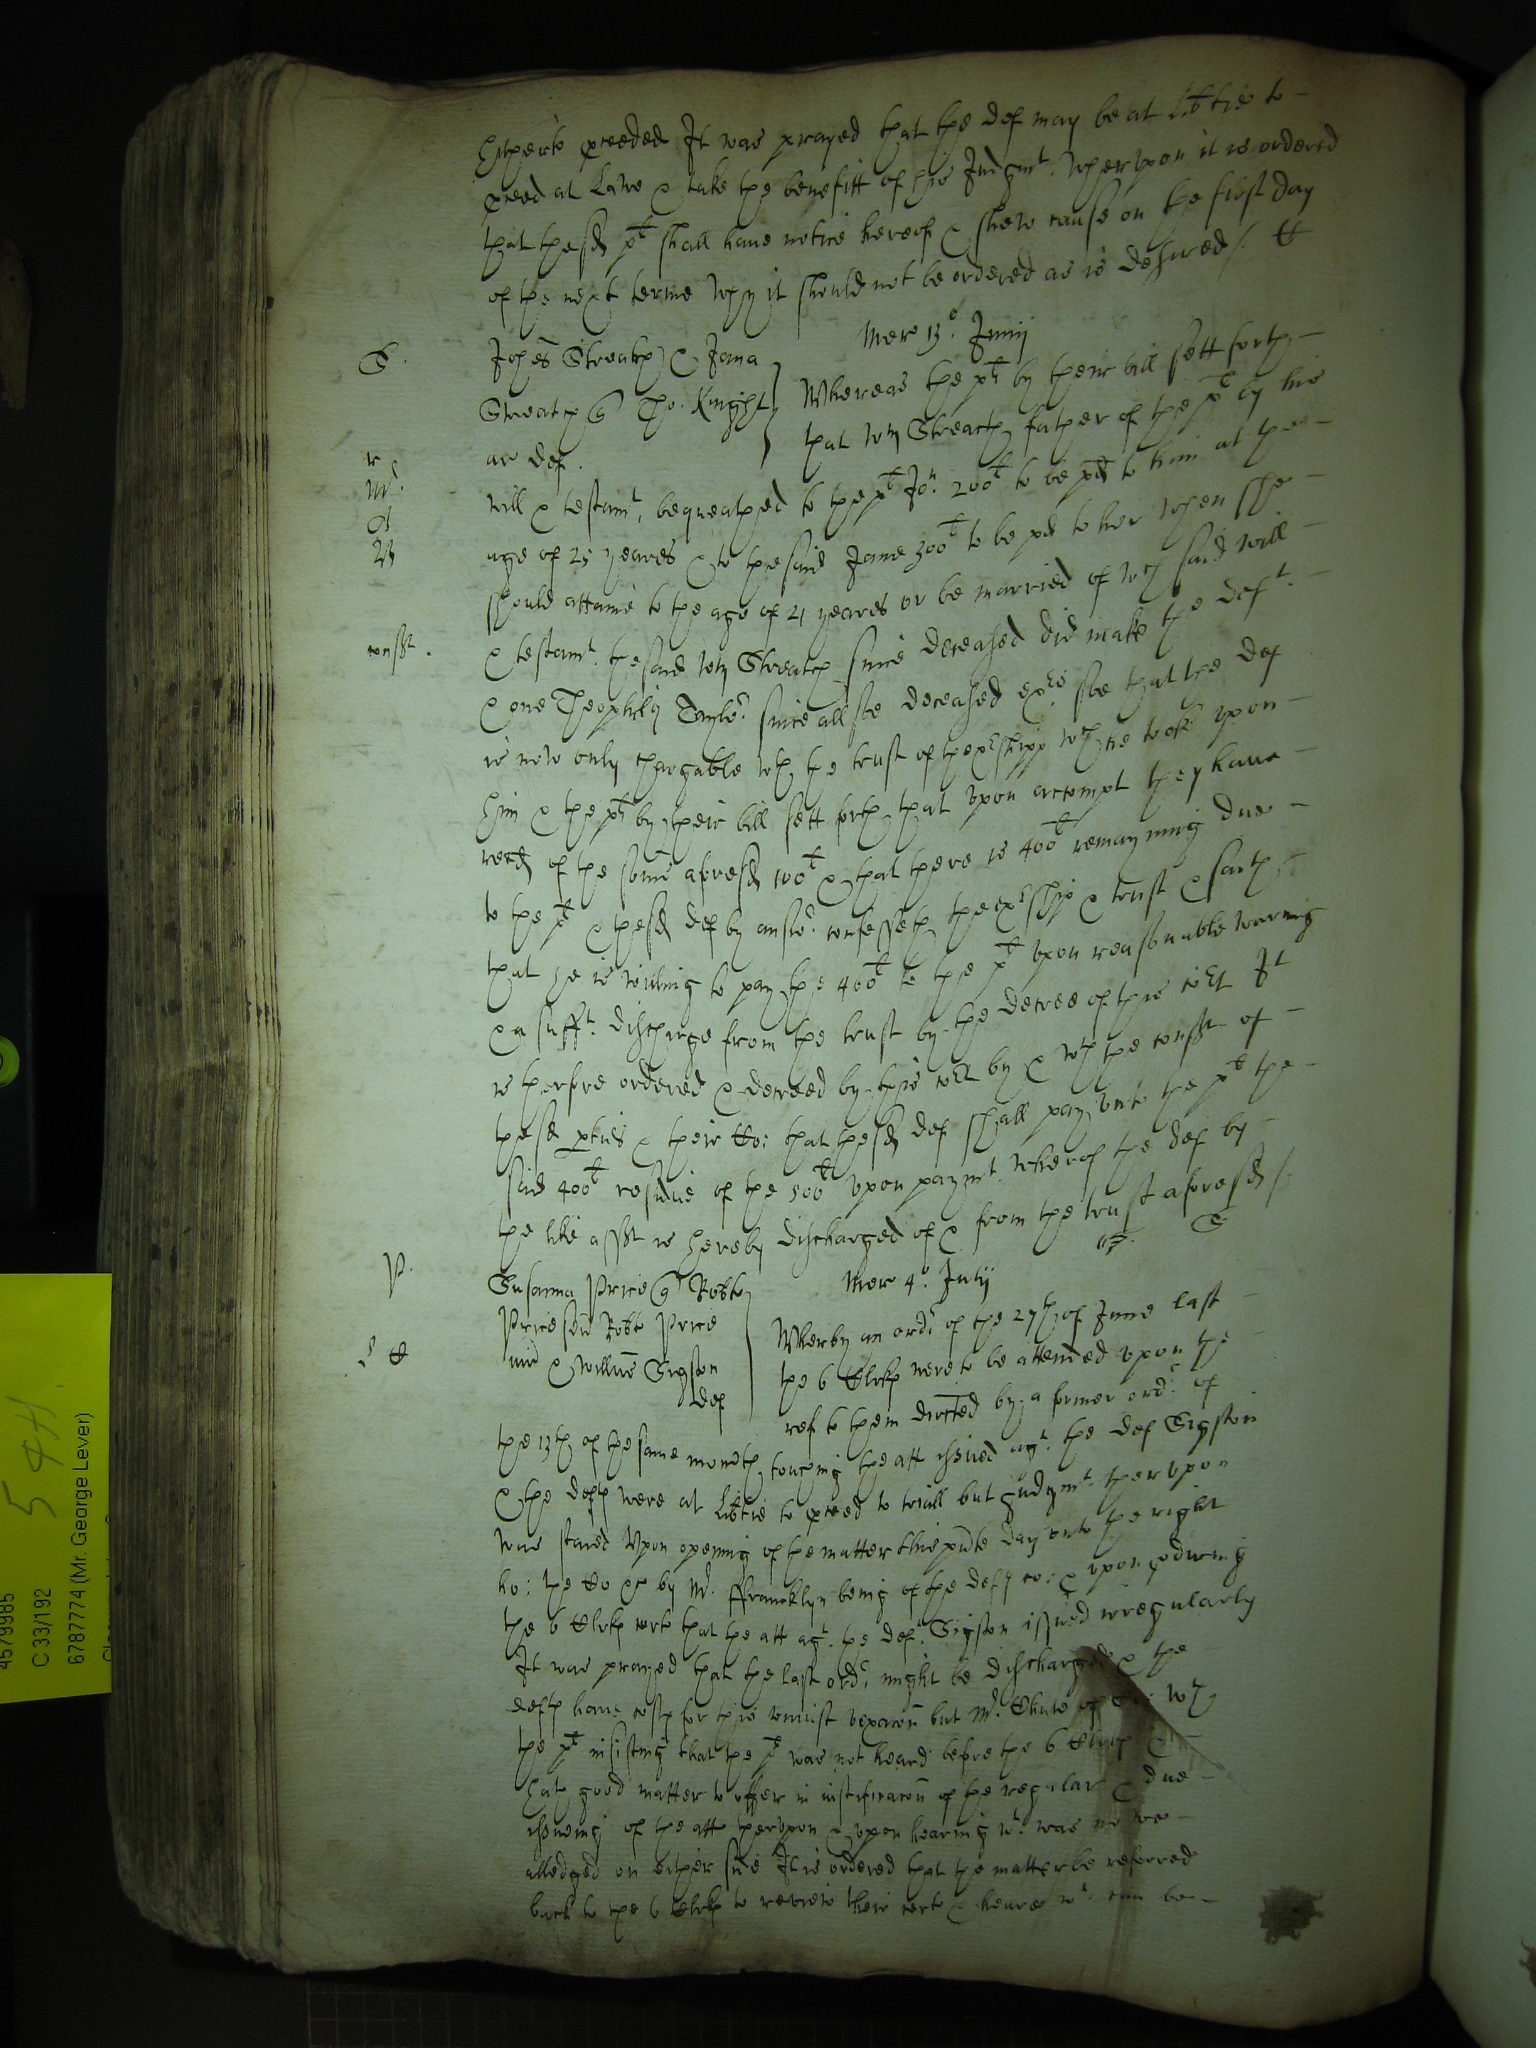 hitherto pceeded It was prayed that the def may be at lib'tie to
pceed at Lawe & take the benefitt of his Judgmt. Wherupon it is ordered
that thesd pl shall have notice hereof & shew cause on the first day
of the next terme Why it should not be ordered as is desired /
Mer 13o. Junij
S.
Johes Streatch & Jana
Streatch Tho: Knight
ar def.
Whereas the pls by their bill sett forth
that Wm Streatch father of the pl by his
will & testamt. bequeathed to the pl Jon. 200l to be pd to him at the
age of 25 yeares & to the said Jane 300l to be pd to her when she
should attaine to the age of 21 yeares or be married of wch said will
consent.
& testamt. the said Wm Streatch since deceased did make the deft.
& one Theophily since alsoe deceased exrs. soe that the def
is now only chargable wth the trust of thexrshipp wch he tooke upon
him & the pls by their bill sett forth that upon accompt they have
recd of the somes aforesd 100l & that there is 400l remayning due
to the pl & thesd def by answr. confesseth the exrship & trust & saith
that he is willing to pay the 400l to the pl upon reasonable warning
& a sufft. discharge from the trust by the decree of this cort It
is therfore ordered & decreed by this cort by & wth the consent of
thesd pties & their Co: that thesd def shall pay unto the pl the
said 400l residue of the 500l upon paymt. wherof the def by
the like assent is hereby discharged of & from the trust aforesd /
P.
Susanna Price Robto
Price sen Robto Price
iun & Willm Sigston
def
Mer 4o. Julij
Wherby an ordr. of the 27th of June last
the 6 Clrks were to be attended upon the
ref to them directed by a former ordr. of
the 13th of the same moneth touching the att issued agt. the def Sigston
& the defts were at lib'tie to pceed to triall but Judgmt. therupon
was staied Upon opening of the matter this pnte day unto the right
ho: the by Mr. Ffrancklyn being of the defts co: & upon pducing
the 6 Clrks certe that the att agt. the deft. Sigston issued irregularly
It was prayed that the last ordr. might be discharged & the
defts have costs for this uniust vexacon but Mr. Chute of Co: wth
the pl insisting that the pl was not heard before the 6 Clrks &
hath good matter to offer in iustificacon of the regular & due
issueing of the att therupon & upon hearing wt. was
alledged on either side It is ordered that the matter be referred
back to the 6 Clrks to review their certe & heare wt. can be
4579985
C 33/192
6787774 (Mr. George Lever)